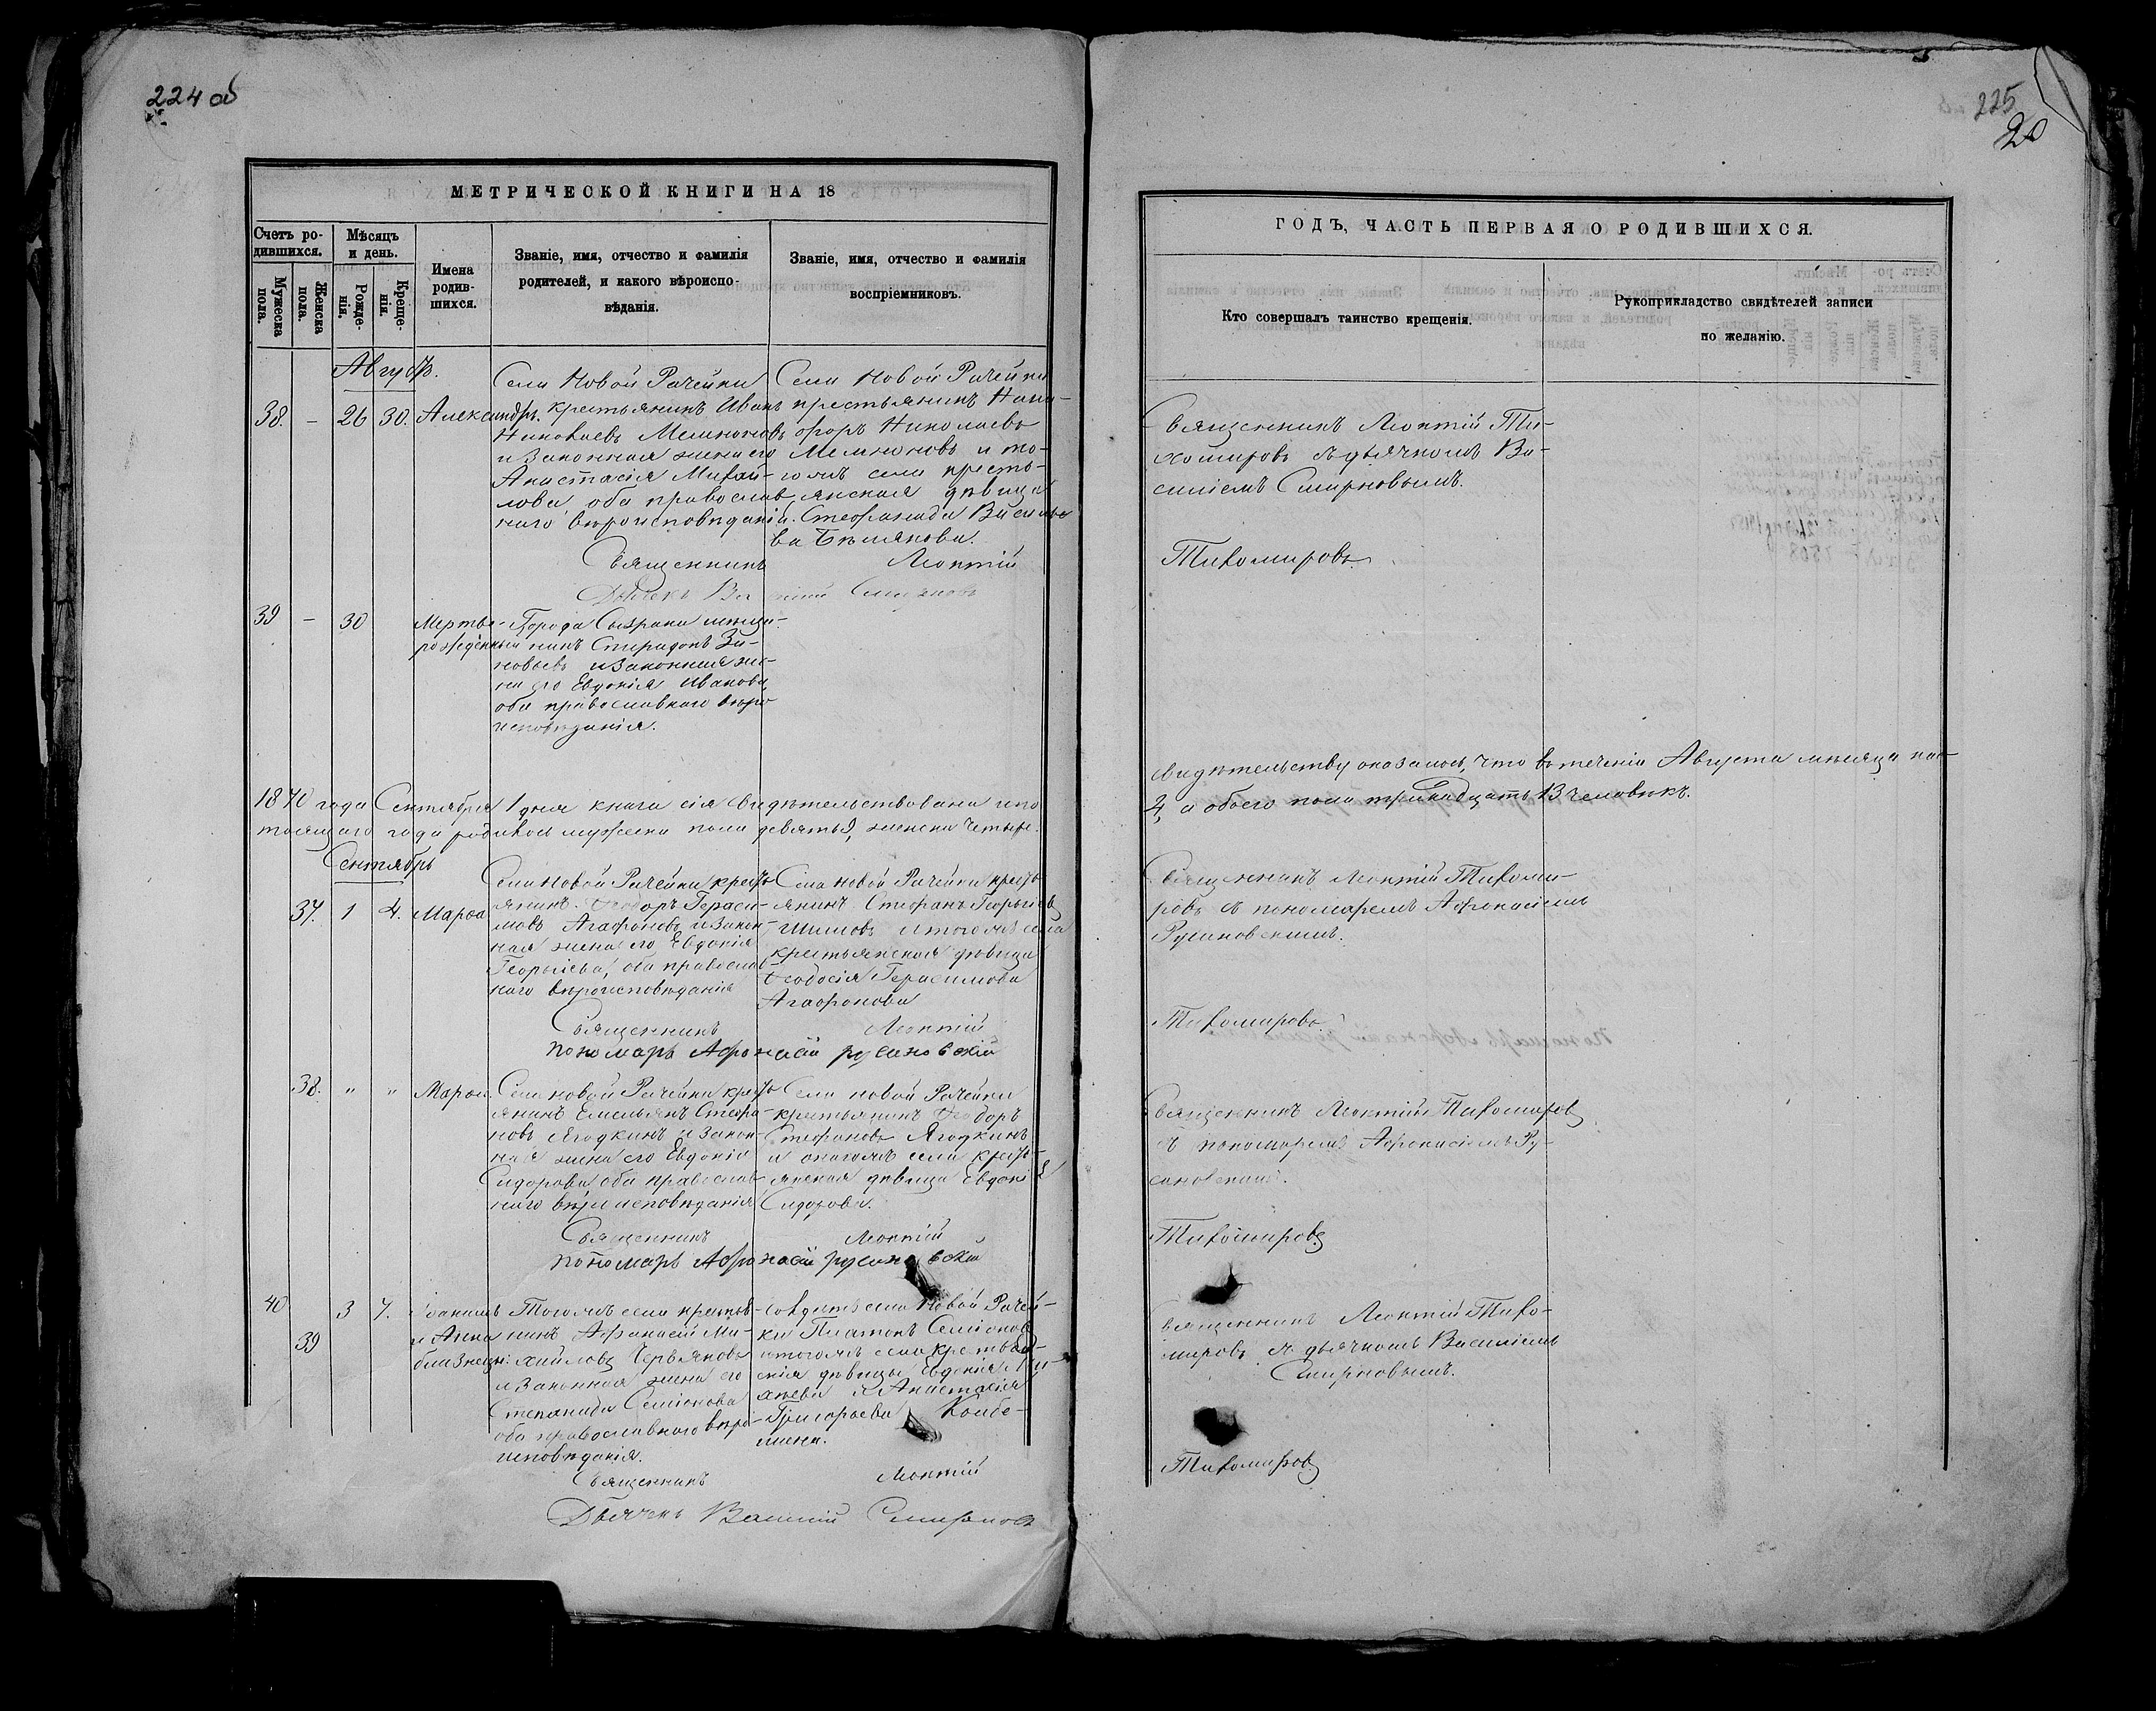 224 об
МЕТРИЧЕСКОЙ КНИГИ НА 18
Счетъ ро-
дившихся.
Мужеска
пола.
Женска
пола.
Мѣсяцъ
и день.
Рожде-
нія.
Креще-
нія.
Имена
родив-
шихся.
Званіе, имя, отчество и фамилія
родителей, и какого вѣроиспо-
вѣданія.
Званіе, имя, отчество и фамилія
воспріемниковъ.
Августъ.
38. – 26 30. Александръ.
Села Новой Рачейки
крестьянинъ Иванъ
Николаевъ Мельниковъ
и законная жена его
Анастасія Михай-
лова, оба православ
наго вѣроисповѣданія.
Села Новой Рачейки
крестьянинъ Ники-
форъ Николаевъ
Мельниковъ и то-
гожъ села кресть-
янская дѣвица
Стефанида Василье
ва Бѣлякова.
Священникъ Леонтій
Дьячекъ Василій Смирновъ
39 – 30 Мертво-
рожденный
Города Сызрани мѣща-
нинъ Спиридонъ Зи-
новьевъ и законная же-
на его Евдокія Иванова,
оба православнаго вѣро
исповѣданія.
1870 года Сентября 1 дня книга сія свидѣтельствована и по
тоящаго года родилось мужеска пола девять 9, женска четыре.
Сентябрь
37. 1 4. Марѳа
Села Новой Рачейки кресть
янинъ Ѳеодоръ Гераси-
мовъ Агафоновъ и закон
ная жена его Евдокія
Георгіева, оба православ
наго вѣроисповѣданія
Села Новой Рачейки кресть
янинъ Стефанъ Георгіевъ
и тогожъ села
крестьянская дѣвица
Ѳеодосія Герасимова
Агафонова
Священникъ Леонтій
пономарь Афонасій русановскій
38. " " Марѳа.
Села Новой Рачейки кресть
янинъ Емельянъ Стефа-
новъ Ягодкинъ и закон-
ная жена его Евдокія
Сидорова оба православ-
наго вѣроисповѣданія
Села Новой Рачейки
крестьянинъ Ѳеодоръ
Стефановъ Ягодкинъ
и онагожъ села кресть-
янская дѣвица Евдокія
Сидорова.
Священникъ Леонтій
пономарь Афонасій русановскій
40 39 3 7.
Іоаннъ
и Анна
близнецы:
Тогожъ села кресть-
нинъ Афанасій Ми-
хайловъ Червяковъ
и законная жена его
Степанида Семіонова
оба православнаго вѣро-
исповѣданія.
солдатъ села Новой Рачей-
ки Платонъ Семіоновъ
и тогожъ села крестьян-
скія дѣвицы Евдокія
и Анастасія
Григорьева
Священникъ Леонтій
Дьячекъ Василій Смирновъ
225
20
ГОДЪ, ЧАСТЬ ПЕРВАЯ О РОДИВШИХСЯ.
Кто совершалъ таинство крещенія.
Рукоприкладство свидѣтелей записи
по желанію.
Священникъ Леонтій Ти-
хомировъ съ дьячкомъ Ва-
силіемъ Смирновымъ.
Тихомировъ.
свидѣтельству оказалось, что въ теченіи Августа мѣсяца нас-
4, а обоего пола тринадцать 13 человѣкъ.
Священникъ Леонтій Тихоми-
ровъ съ пономаремъ Афонасіемъ
Русановскимъ.
Тихомировъ.
Священникъ Леонтій Тихомировъ
съ пономаремъ Афонасіемъ Ру-
сановскимъ.
Тихомировъ
Священникъ Леонтій Тихо-
мировъ съ дьячкомъ Василіемъ
Смирновымъ.
Тихомировъ